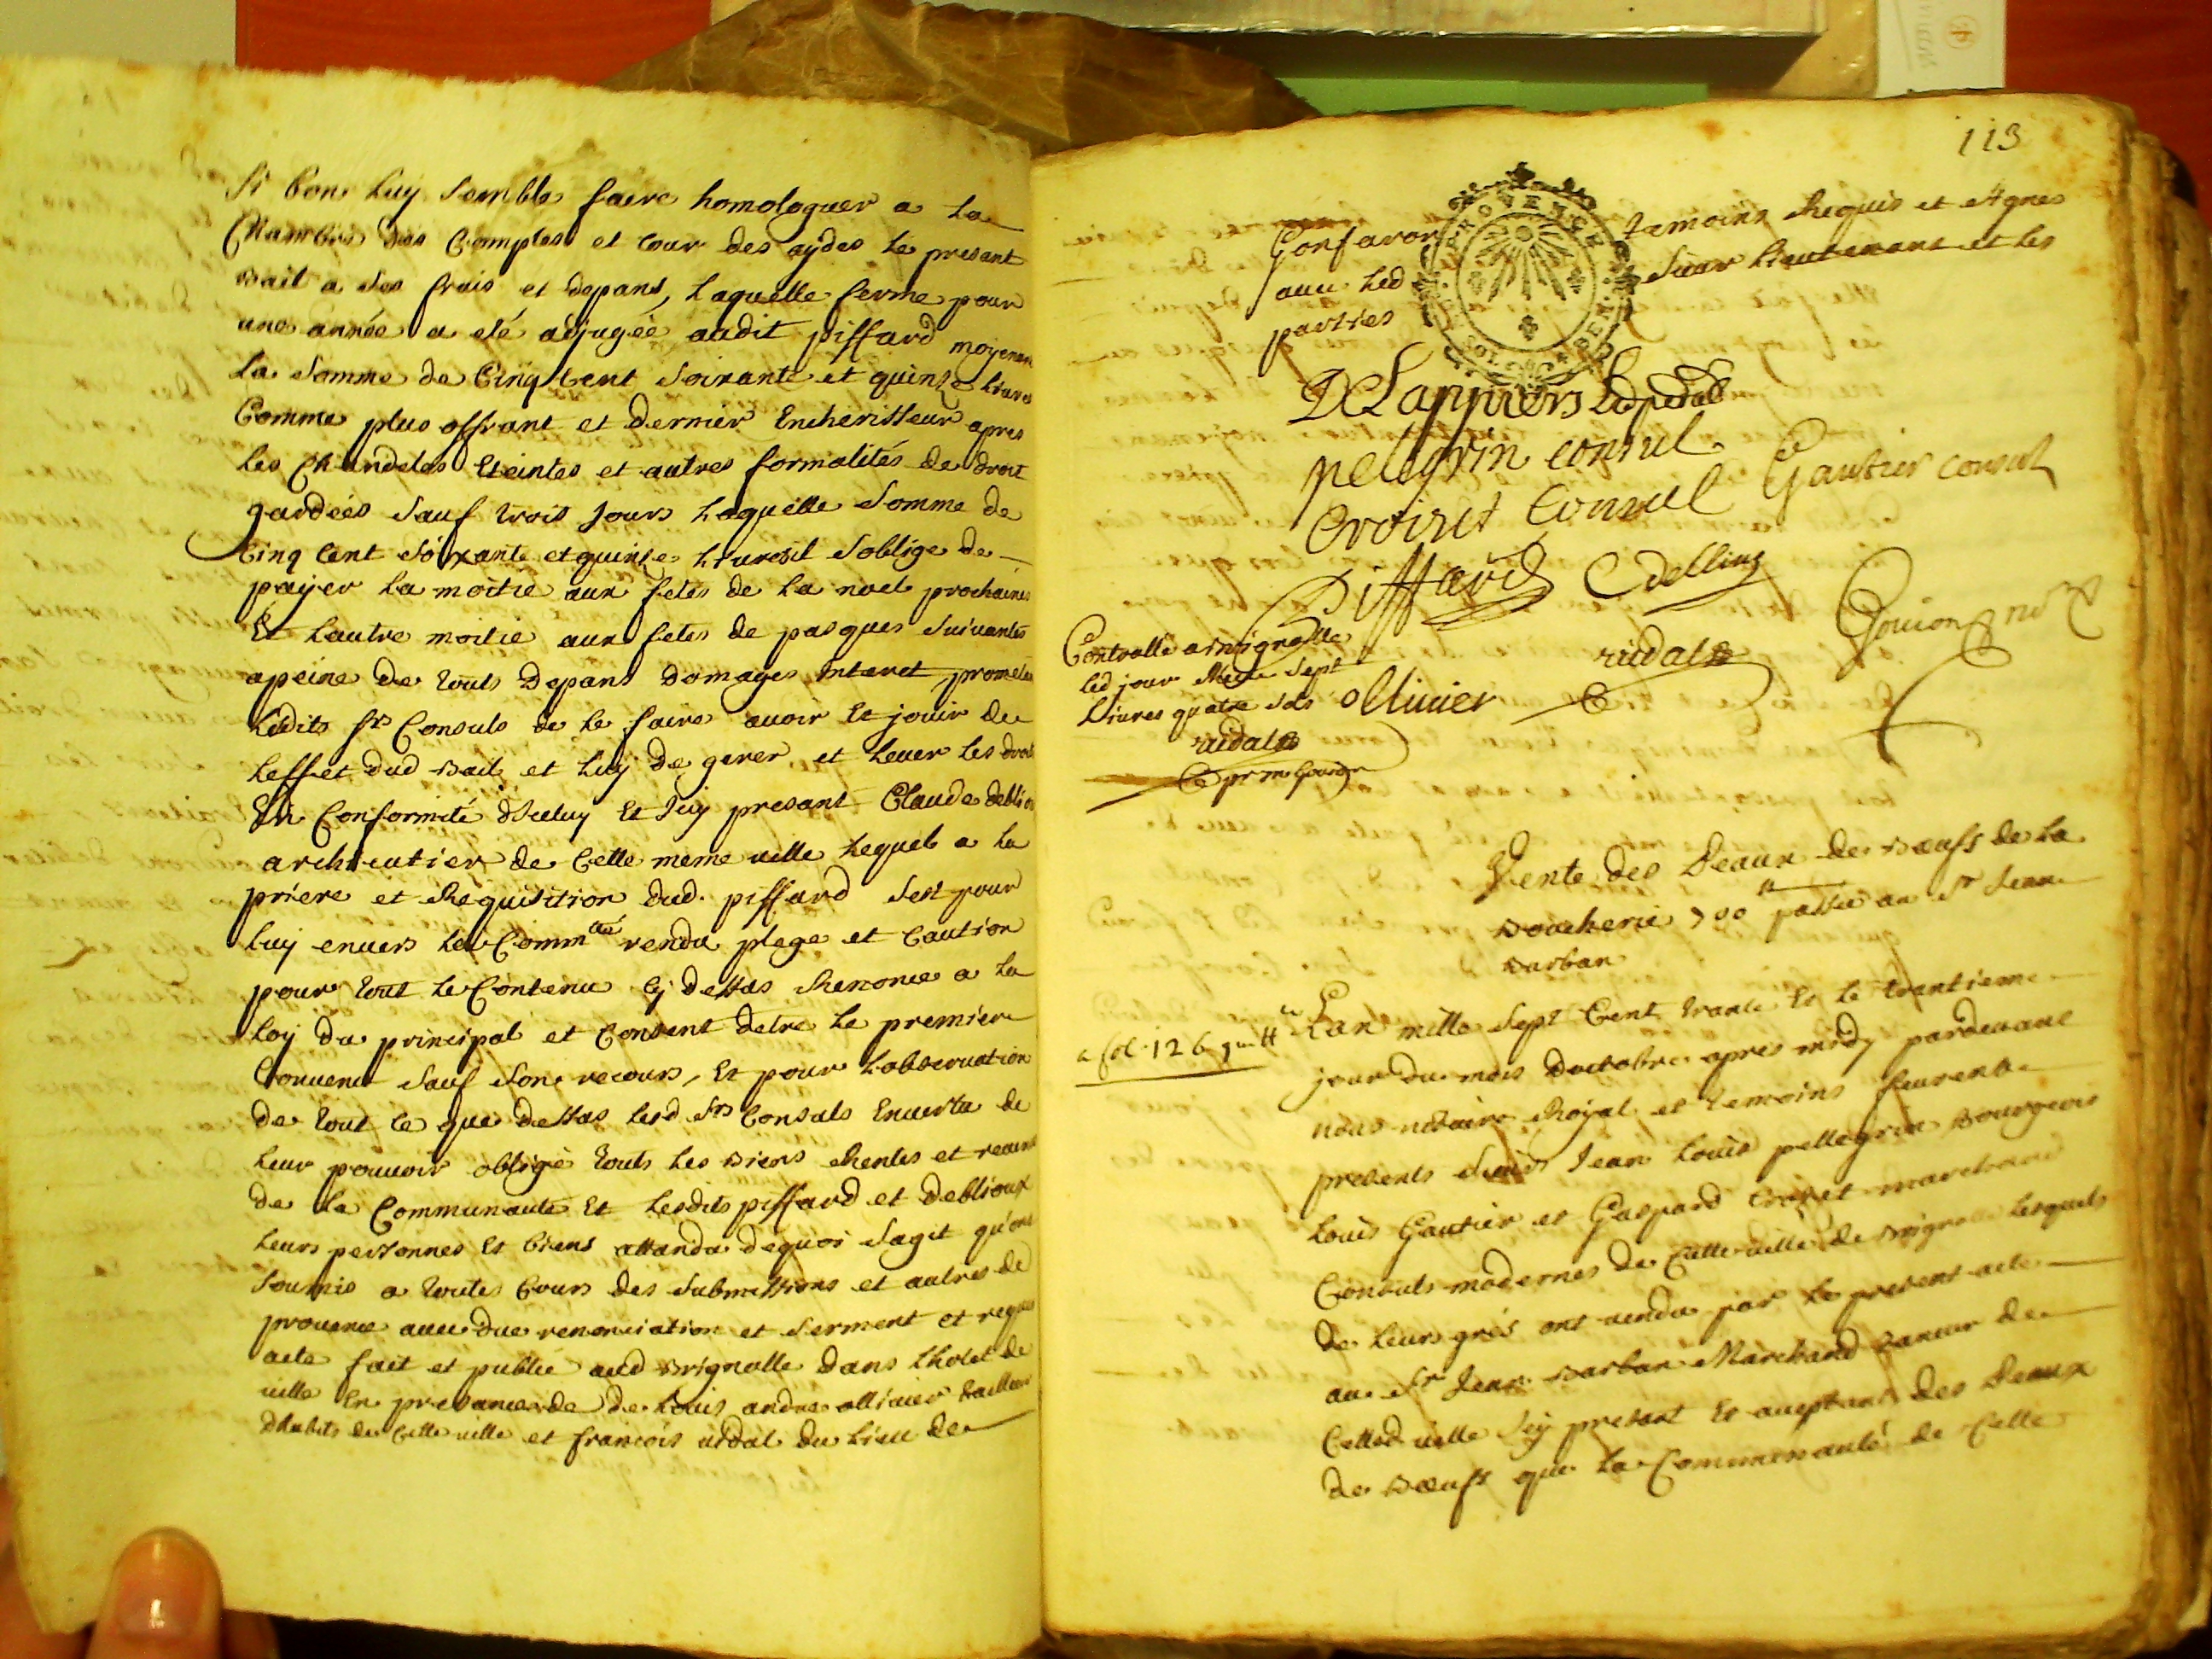 si bon luy semble faire homologuer a la
Chambre des Comptes et Cour des aydes le presant
Bail a ses frais et depans, Laquelle ferme pour
une année a eté adjugée audit piffard moyenen
La somme de Cinq Cent soixante et quinze livres
Comme plus offrant et dernier Encherisseur apres
les Chandeles Eteintes et autres formalités de droit
gardées sauf trois jours Laquelle somme de
Cinq Cent soixante et quinze Livres il soblige de
payer la moitie aux fetes de la noel prochaines
Et lautre moitie aux fetes de pasques suivantes
apeine de touts Depans Domages Interet, prometen
Ledits srs Consuls de le faire avoir Et jouir de
Leffet dud Bail et luy de gerer et lever les droits
En Conformité d'Iceluy Et Icy presant Claude
de Cette meme ville Lequel a la
priere et Requisition dud. piffard sest pour
luy envers la Commté rendu plege et Caution
pour tout le Contenu Cy dessus Renonce a la
Loy du principal et Consent detre le premier
Convenu sauf son recours, Et pour Lobservation
de tout ce que dessus lesd srs Consuls En vertu de
leur pouvoir obligé touts les Biens Rentes et revenus
de la Communauté Et Lesdits piffard et deblioux
leurs personnes Et biens attandu dequoi sagit qu'ont
soumis a toutes Cours des submissions et autres de
provence avec due renonciation et serment et requis
acte fait et publié aud Brignolle dans lhotel de
ville En presance de de Louis andre ollivier tailleur
dhabits de Cette ville et françois vidal du lieu de
113
PROVENCE
Gonfaron temoins Requis et signes
avec led sieur Lieutenant et les
parties
pelegrin consul
Gautier consul
Croizet Consul
Piffard
Gouion no
vidal
ollivier
Controllé a Brignolle
led jour Reçu sept
Livres quatre sols
vidal
Vente des Peaux de Bœufs de la
Boucherie 700 ℔ passée au Sr Jean
Barban
a fol. 126
Lan mille sept Cent trante Et le trantieme
jour du mois Doctobre apres midy pardevant
nous notaire Royal et temoins furent
presents sieurs Jean Louis pellegrin Bourgeois
Louis Gautier et Gaspard Croizet marchand
Consuls modernes de Cette ville de Brignolle Lesquels
de leurs grés ont vendu par le present acte
au Sr Jean Barban Marchand taneur de
Cetted ville Icy present Et aceptant des Peaux
de Bœufs que la Communauté de Cette